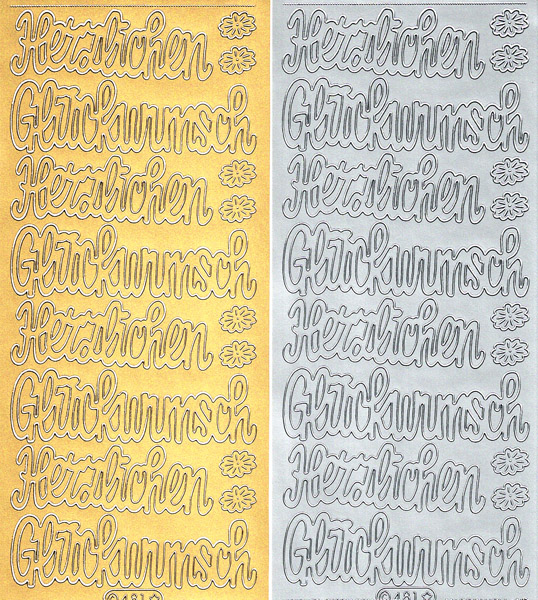 Herzlichen
Glückwunsch
Herzlichen
Glückwunsch
Herzlichen
Glückwunsch
Herzlichen
Glückwunsch
© 481
Herzlichen
Glückwunsch
Herzlichen
Glückwunsch
Herzlichen
Glückwunsch
Herzlichen
Glückwunsch
© 481